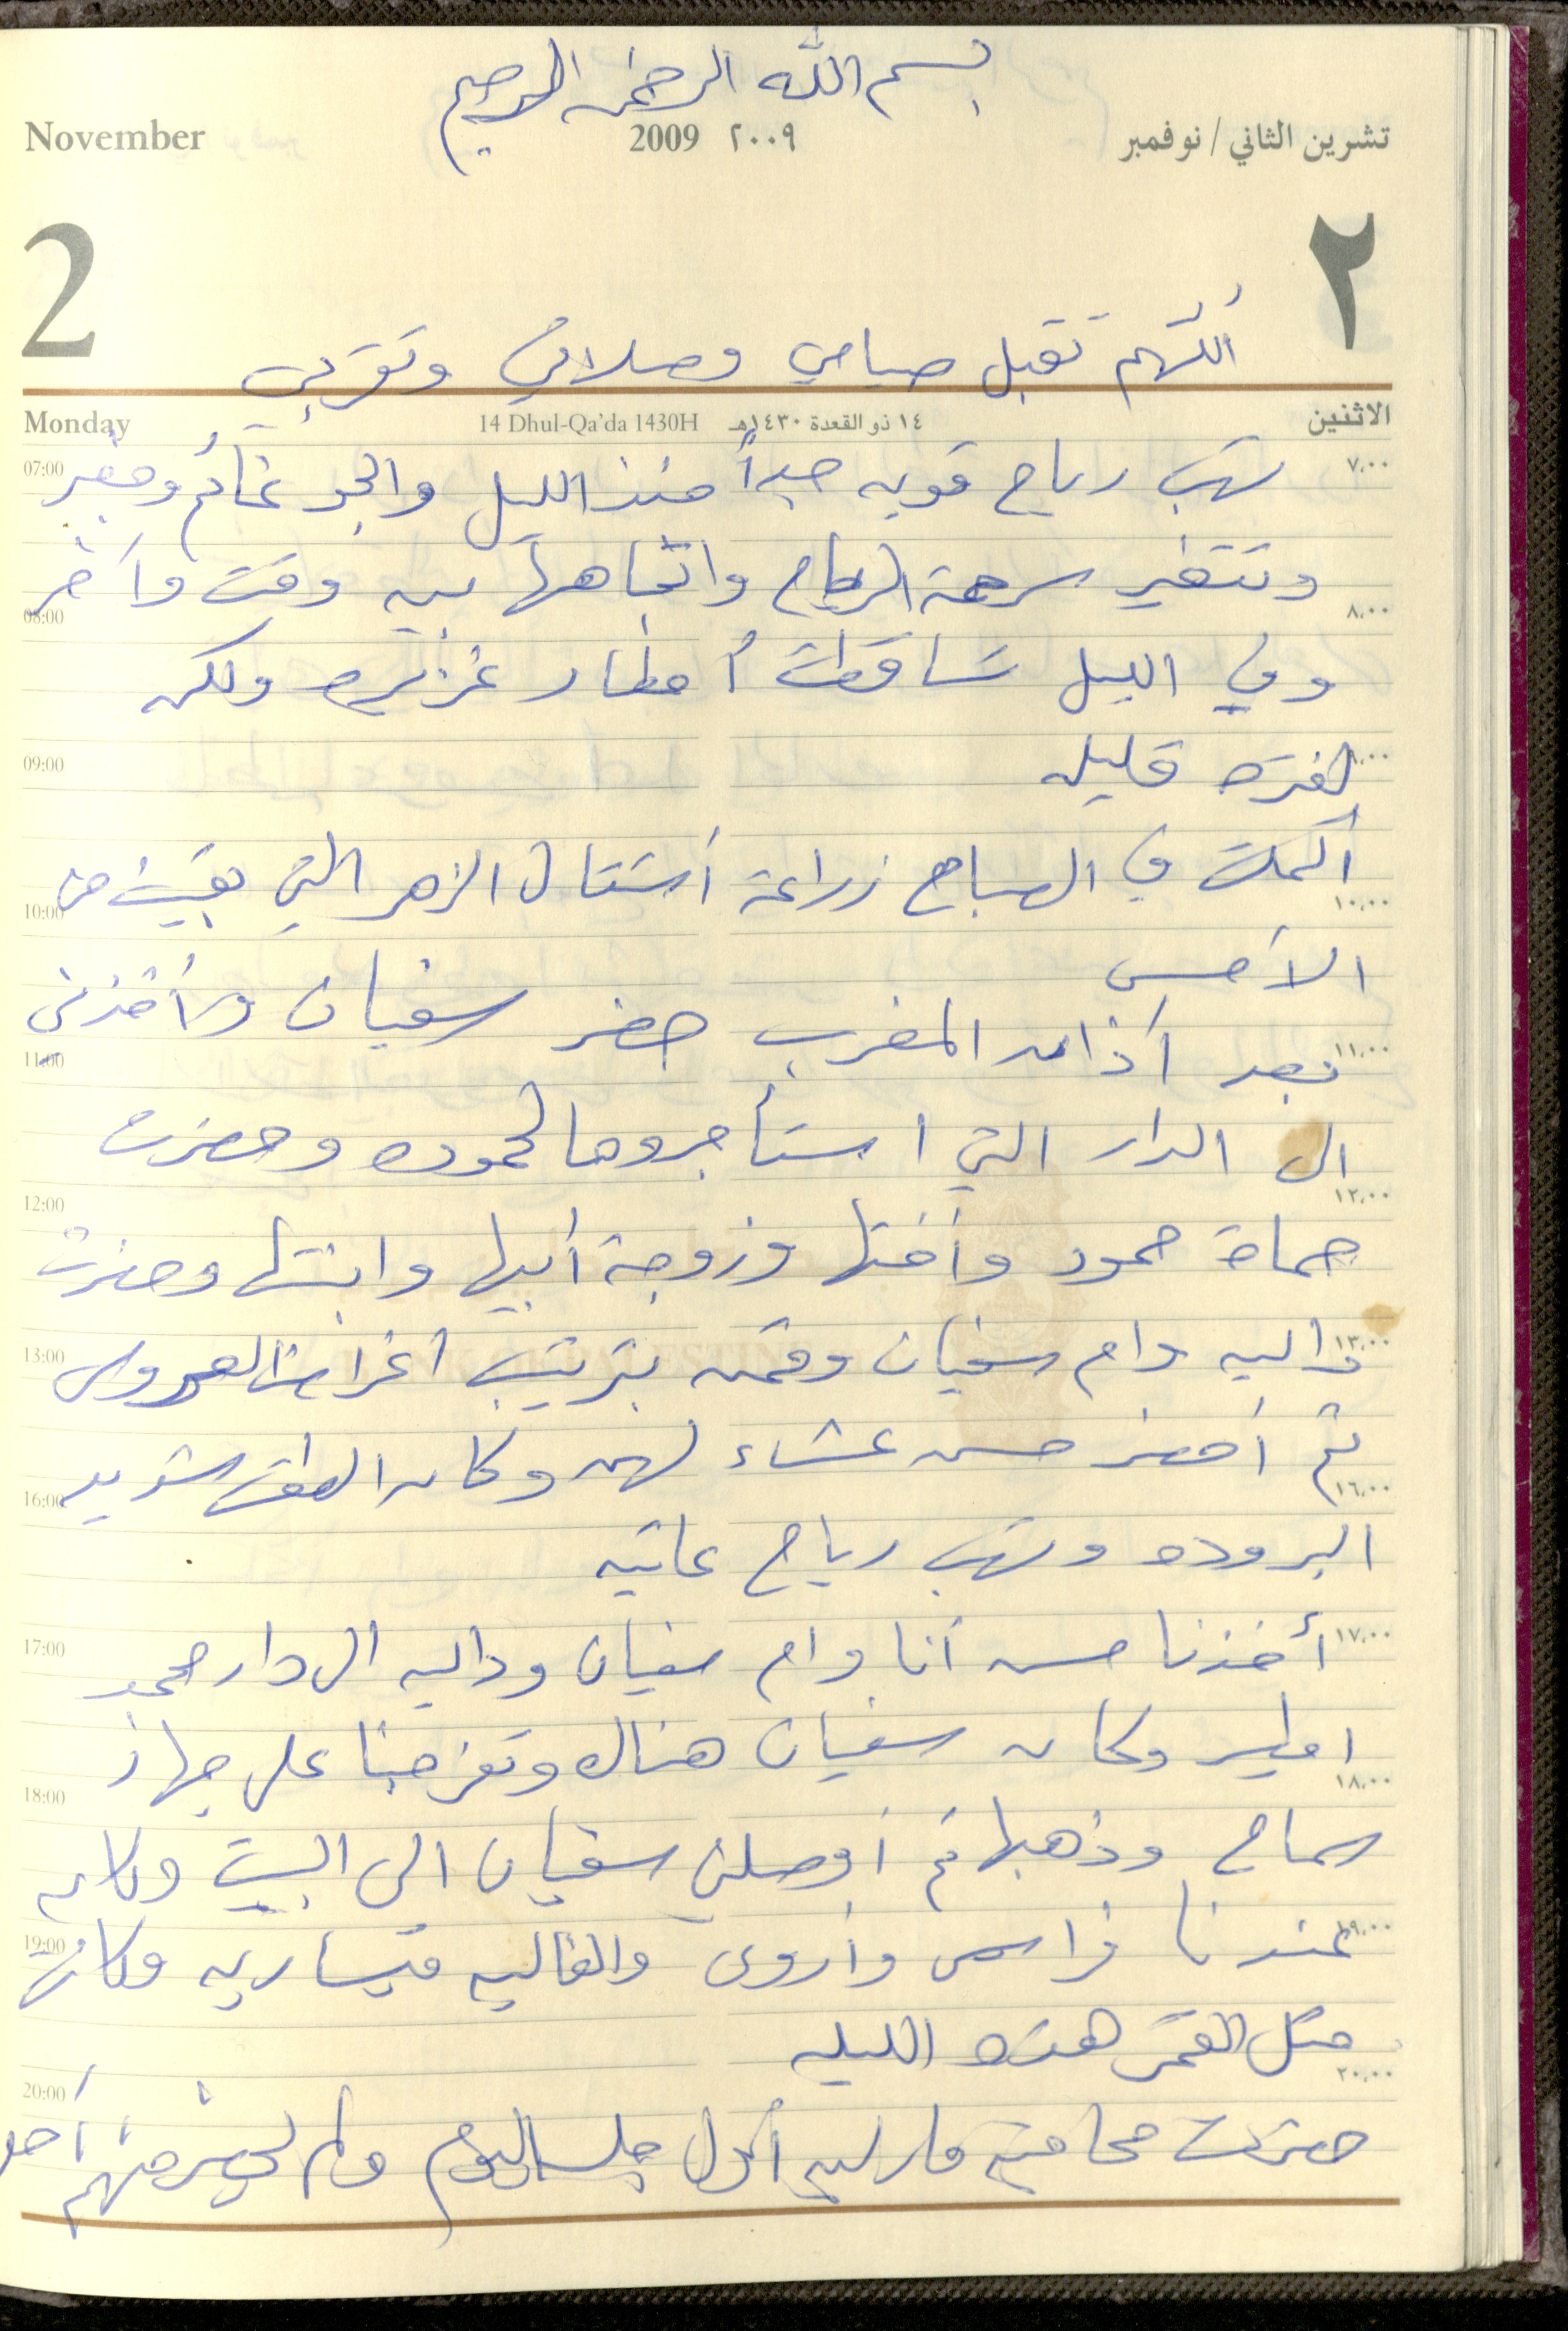 بسم الله الرحمن الرحيم
November 2009 ٢٠٠٩ تشرين الثاني / نوفمبر
2 ٢
اللهم تقبل صيامي وصلاتي وتقربي
Monday 14 Dhul-Qa'da 1430H ١٤ ذو القعدة ١٤٣٠هـ الاثنين
07:00 ٧,٠٠
تهب رياح قويه جداً منذ الليل والجو غائم ومغبر
وتتغير سرعة الرياح واتجاهها بين وقت وآخر
08:00 ٨,٠٠
وفي الليل تساقطت أمطار غزيره ولكن
09:00
لفتره قليله
أكملت في الصباح زراعة أشتال الزهر التي بقيت من
10:00 ١٠,٠٠
الأمس
بعد أذان المغرب حضر سفيان وأخذني
11:00 ١١,٠٠
الى الدار التي استأجروها لحموده وحضرت
12:00 ١٢,٠٠
حماة حمود وأختها وزوجة أبيها وابنتها وحضرت
13:00 ١٣,٠٠
داليه وام سفيان وقمن بترتيب اغراض العروس
ثم أحضر حسن عشاء لهن وكان الطقس شديد
16:00 ١٦,٠٠
البروده وتهب رياح عاتيه
17:00 ١٧,٠٠
أخذنا حسن أنا وام سفيان وداليه الى دار محمد
وكان سفيان هناك وتفرجنا على جهاز
18:00 ١٨,٠٠
سماح وذهبها ثم أوصلني سفيان الى البيت وكان
19:00 ١٩,٠٠
عندنا فراس وأروى والغاليه ميساريه وكانت
مثل القمر هذه الليله
20:00 ٢٠,٠٠
حضرت محاميه أول جلسه اليوم ولم يحضر منهم أحد
BANK OF PALESTINE